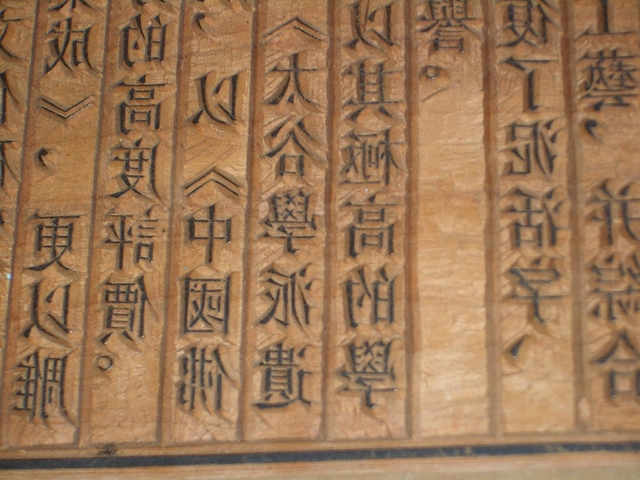 成》,更以雕
的高度評價。
,以《中國佛
《太谷學派遺
以其極高的學
譽。
復了泥活字、
工藝,并綜合